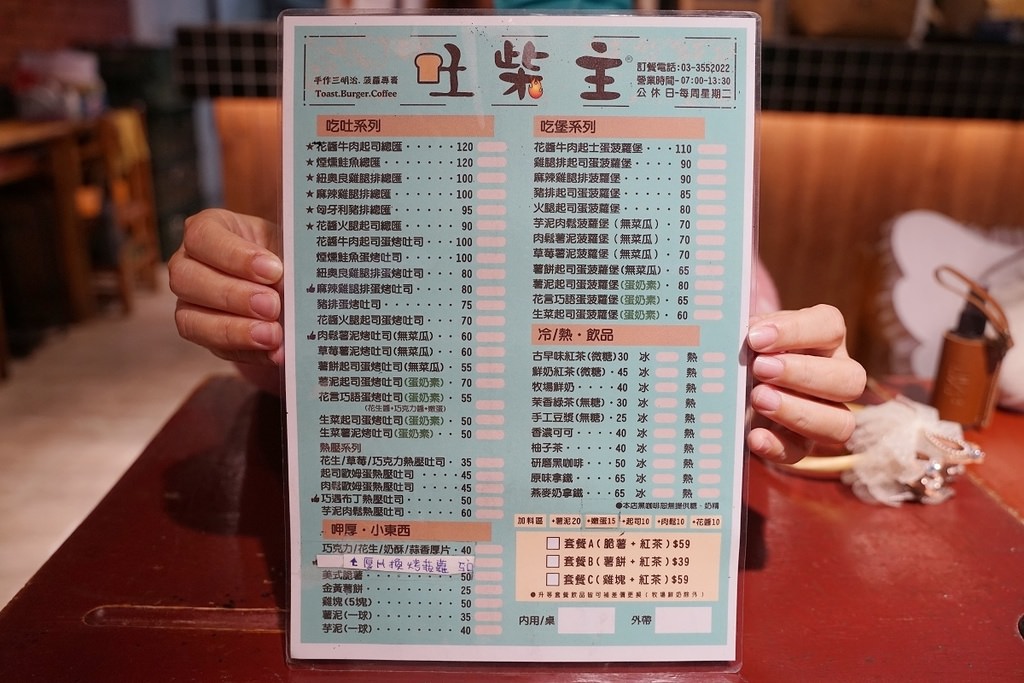 手作三明治．菠蘿專賣
Toast.Burger.Coffee
吐柴主®
訂餐電話:03-3552022
營業時間-07:00-13:30
公休日-每周星期二
吃吐系列
★花醬牛肉起司總匯······120
★煙燻鮭魚總匯······120
★紐奧良雞腿排總匯······100
★麻辣雞腿排總匯······100
★匈牙利豬排總匯······95
★花醬火腿起司總匯······90
花醬牛肉起司蛋烤吐司···100
煙燻鮭魚蛋烤吐司······100
紐奧良雞腿排蛋烤吐司····80
麻辣雞腿排蛋烤吐司·····80
豬排蛋烤吐司········75
花醬火腿起司蛋烤吐司····70
肉鬆薯泥烤吐司(無菜瓜)···60
草莓薯泥烤吐司(無菜瓜)···60
薯餅起司蛋烤吐司(無菜瓜)··55
薯泥起司蛋烤吐司(蛋奶素)··70
花言巧語蛋烤吐司(蛋奶素)··55
(花生醬+巧克力醬+嫩蛋)
生菜起司蛋烤吐司(蛋奶素)··50
生菜薯泥烤吐司(蛋奶素)···50
熱壓系列
花生/草莓/巧克力熱壓吐司··35
起司歐姆蛋熱壓吐司·····45
肉鬆歐姆蛋熱壓吐司·····45
巧遇布丁熱壓吐司······50
芋泥肉鬆熱壓吐司······60
呷厚·小東西
巧克力/花生/奶酥/蒜香厚片·40
厚片換烤菠蘿 50
美式脆薯··········50
金黃薯餅··········25
雞塊(5塊)·········50
薯泥(一球)·········35
芋泥(一球)·········40
吃堡系列
花醬牛肉起士蛋菠蘿堡···110
雞腿排起司蛋菠蘿堡····90
麻辣雞腿排菠蘿堡·····90
豬排起司蛋菠蘿堡·····85
火腿起司蛋菠蘿堡·····80
芋泥肉鬆菠蘿堡(無菜瓜)··70
肉鬆薯泥菠蘿堡(無菜瓜)··70
草莓薯泥菠蘿堡(無菜瓜)··70
薯餅起司蛋菠蘿堡(無菜瓜)·65
薯泥起司蛋菠蘿堡(蛋奶素)·80
花言巧語蛋菠蘿堡(蛋奶素)·65
生菜起司蛋菠蘿堡(蛋奶素)·60
冷/熱·飲品
古早味紅茶(微糖)30 冰 熱
鮮奶紅茶(微糖)·45 冰 熱
牧場鮮奶·····40 冰 熱
茉香綠茶(無糖)·30 冰 熱
手工豆漿(無糖)·25 冰 熱
香濃可可·····40 冰 熱
柚子茶······40 冰 熱
研磨黑咖啡····50 冰 熱
原味拿鐵·····65 冰 熱
燕麥奶拿鐵····65 冰 熱
●本店黑咖啡恕無提供糖、奶精
加料區 +薯泥20 +嫩蛋15 +起司10 +肉鬆10 +花醬10
套餐A(脆薯+紅茶)$59
套餐B(薯餅+紅茶)$39
套餐C(雞塊+紅茶)$59
●升等套餐飲品皆可補差價更換(牧場鮮奶除外)
內用/桌 外帶